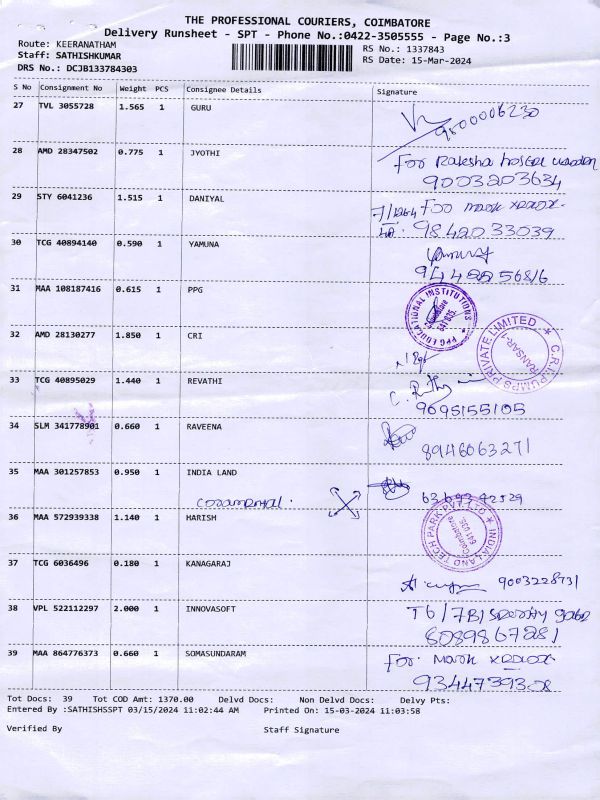 THE PROFESSIONAL COURIERS, COIMBATORE
Delivery Runsheet - SPT - Phone No.:0422-3505555 - Page No.:3
Route: KEERANATHAM RS No.: 1337843
Staff: SATHISHKUMAR RS Date: 15-Mar-2024
DRS No.: DCJB133784303
S No Consignment No Weight PCS Consignee Details Signature
27 TVL 3055728 1.565 1 GURU
9500006230
28 AMD 28347502 0.775 1 JYOTHI
For Raksha hostel warden
9003203634
29 STY 6041236 1.515 1 DANIYAL
For mark xerox
9842033039
30 TCG 40894140 0.590 1 YAMUNA
31 MAA 108187416 0.615 1 PPG
PPG EDUCATIONAL INSTITUTIONS
Coimbatore
641 035.
32 AMD 28130277 1.850 1 CRI
C.R.I. PUMPS PRIVATE LIMITED
33 TCG 40895029 1.440 1 REVATHI
9095155105
34 SLM 341778901 0.660 1 RAVEENA
8946063271
35 MAA 301257853 0.950 1 INDIA LAND
INDIA LAND TECH PARK PVT. LTD
Coimbatore
641 035.
36 MAA 572939338 1.140 1 HARISH
37 TCG 6036496 0.180 1 KANAGARAJ
38 VPL 522112297 2.000 1 INNOVASOFT
T6/7B1
8089867281
39 MAA 864776373 0.660 1 SOMASUNDARAM
for: Mark xerox
9344739308
Tot Docs: 39 Tot COD Amt: 1370.00 Delvd Docs: Non Delvd Docs: Delvy Pts:
Entered By :SATHISHSSPT 03/15/2024 11:02:44 AM Printed On: 15-03-2024 11:03:58
Verified By Staff Signature